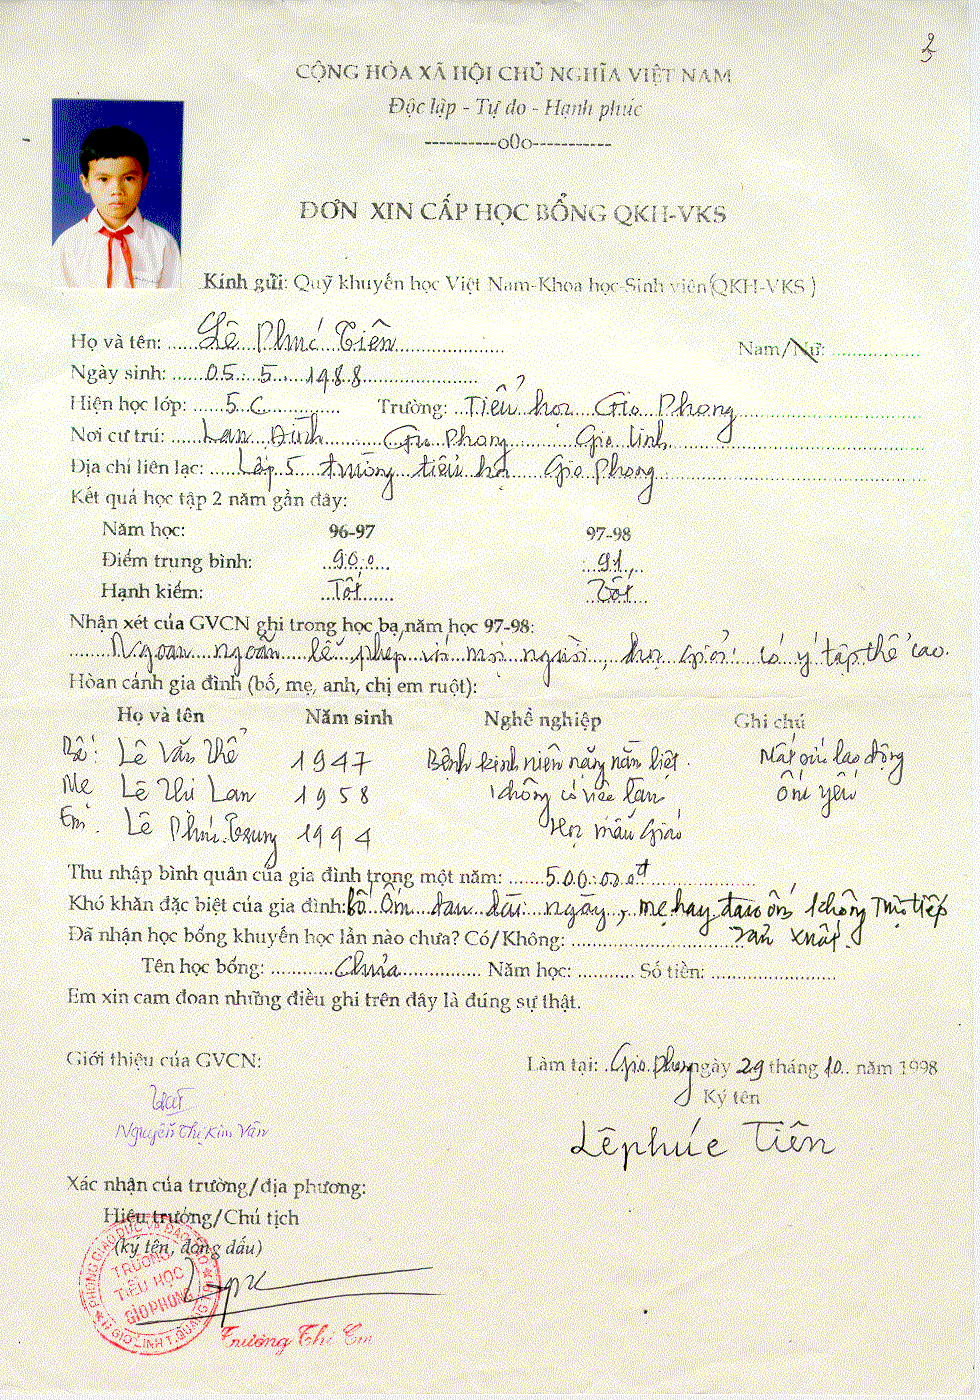 2
CỘNG HÒA XÃ HỘI CHỦ NGHĨA VIỆT NAM
Độc lập - Tự do - Hạnh phúc
----------o0o-----------
ĐƠN XIN CẤP HỌC BỔNG QKH-VKS
Kính gửi: Quỹ khuyến học Việt Nam-Khoa học-Sinh viên (QKH-VKS)
Họ và tên: Lê Phúc Tiên Nam/Nữ:
Ngày sinh: 05. 5. 1988
Hiện học lớp: 5C Trường: Tiểu học Gio Phong
Nơi cư trú: Lan Đình Gio Phong Gio Linh
Địa chỉ liên lạc: Lớp 5 trường tiểu học Gio Phong
Kết quả học tập 2 năm gần đây:
Năm học: 96-97 97-98
Điểm trung bình: 9,0 9,1
Hạnh kiểm: Tốt Tốt
Nhận xét của GVCN ghi trong học bạ năm học 97-98:
Ngoan ngoãn lễ phép với mọi người, học giỏi có ý tập thể cao.
Hoàn cảnh gia đình (bố, mẹ, anh, chị em ruột):
Họ và tên Năm sinh Nghề nghiệp Ghi chú
Bố: Lê Văn Thể 1947 Bệnh kinh niên nặng nằm liệt. Mất sức lao động
Mẹ Lê Thị Lan 1958 Không có việc làm ốm yếu
Em: Lê Phúc Trung 1994 Học mẫu giáo
Thu nhập bình quân của gia đình trong một năm: 500.000đ
Khó khăn đặc biệt của gia đình: Bố ốm đau dài ngày, mẹ hay đau ốm không trực tiếp
sản xuất.
Đã nhận học bổng khuyến học lần nào chưa? Có/Không:
Tên học bổng: Chưa Năm học: Số tiền:
Em xin cam đoan những điều ghi trên đây là đúng sự thật.
Giới thiệu của GVCN: Làm tại: Gio Phong ngày 29 tháng 10 năm 1998
Ký tên
Nguyễn Thị Kim Vân
Lê phúc Tiên
Xác nhận của trường/địa phương:
Hiệu trưởng/Chủ tịch
(ký tên, đóng dấu)
PHÒNG GIÁO DỤC VÀ ĐÀO TẠO
TRƯỜNG
TIỂU HỌC
GIO PHONG
H GIO LINH T.QUẢNG TRỊ
Trương Thí Em